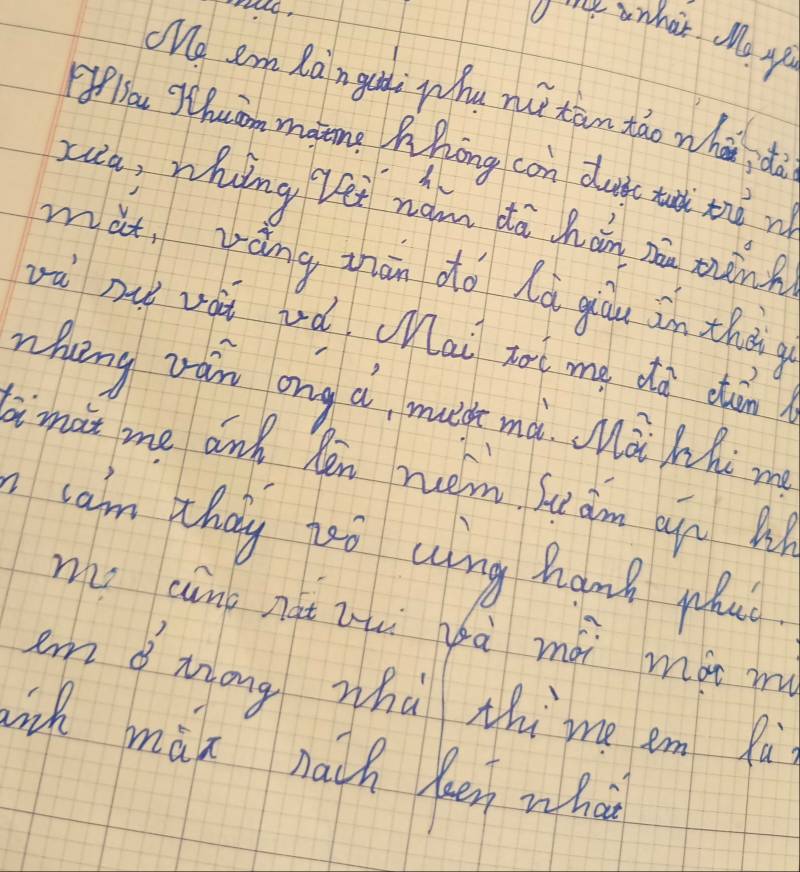 mẹ nhất. Mẹ yêu
Mẹ em là người phụ nữ tần tảo nhất, đã
Khuôn mặt mẹ không còn được tươi trẻ nh
xưa, những vết nhăn đã hằn sâu trên kh
mặt, vầng trán đó là giấu ấn thời gi
và sự vất vả. Mái tóc mẹ đã điểm b
nhưng vẫn óng ả, mượt mà. Mỗi khi mẹ
đôi mắt mẹ ánh lên niềm. Sự ấm áp kh
m cảm thấy vô cùng hạnh phúc.
mẹ cũng rất vui và mỗi một mù
em ở trong nhà thì mẹ em là
ánh mắt sách ben nhất